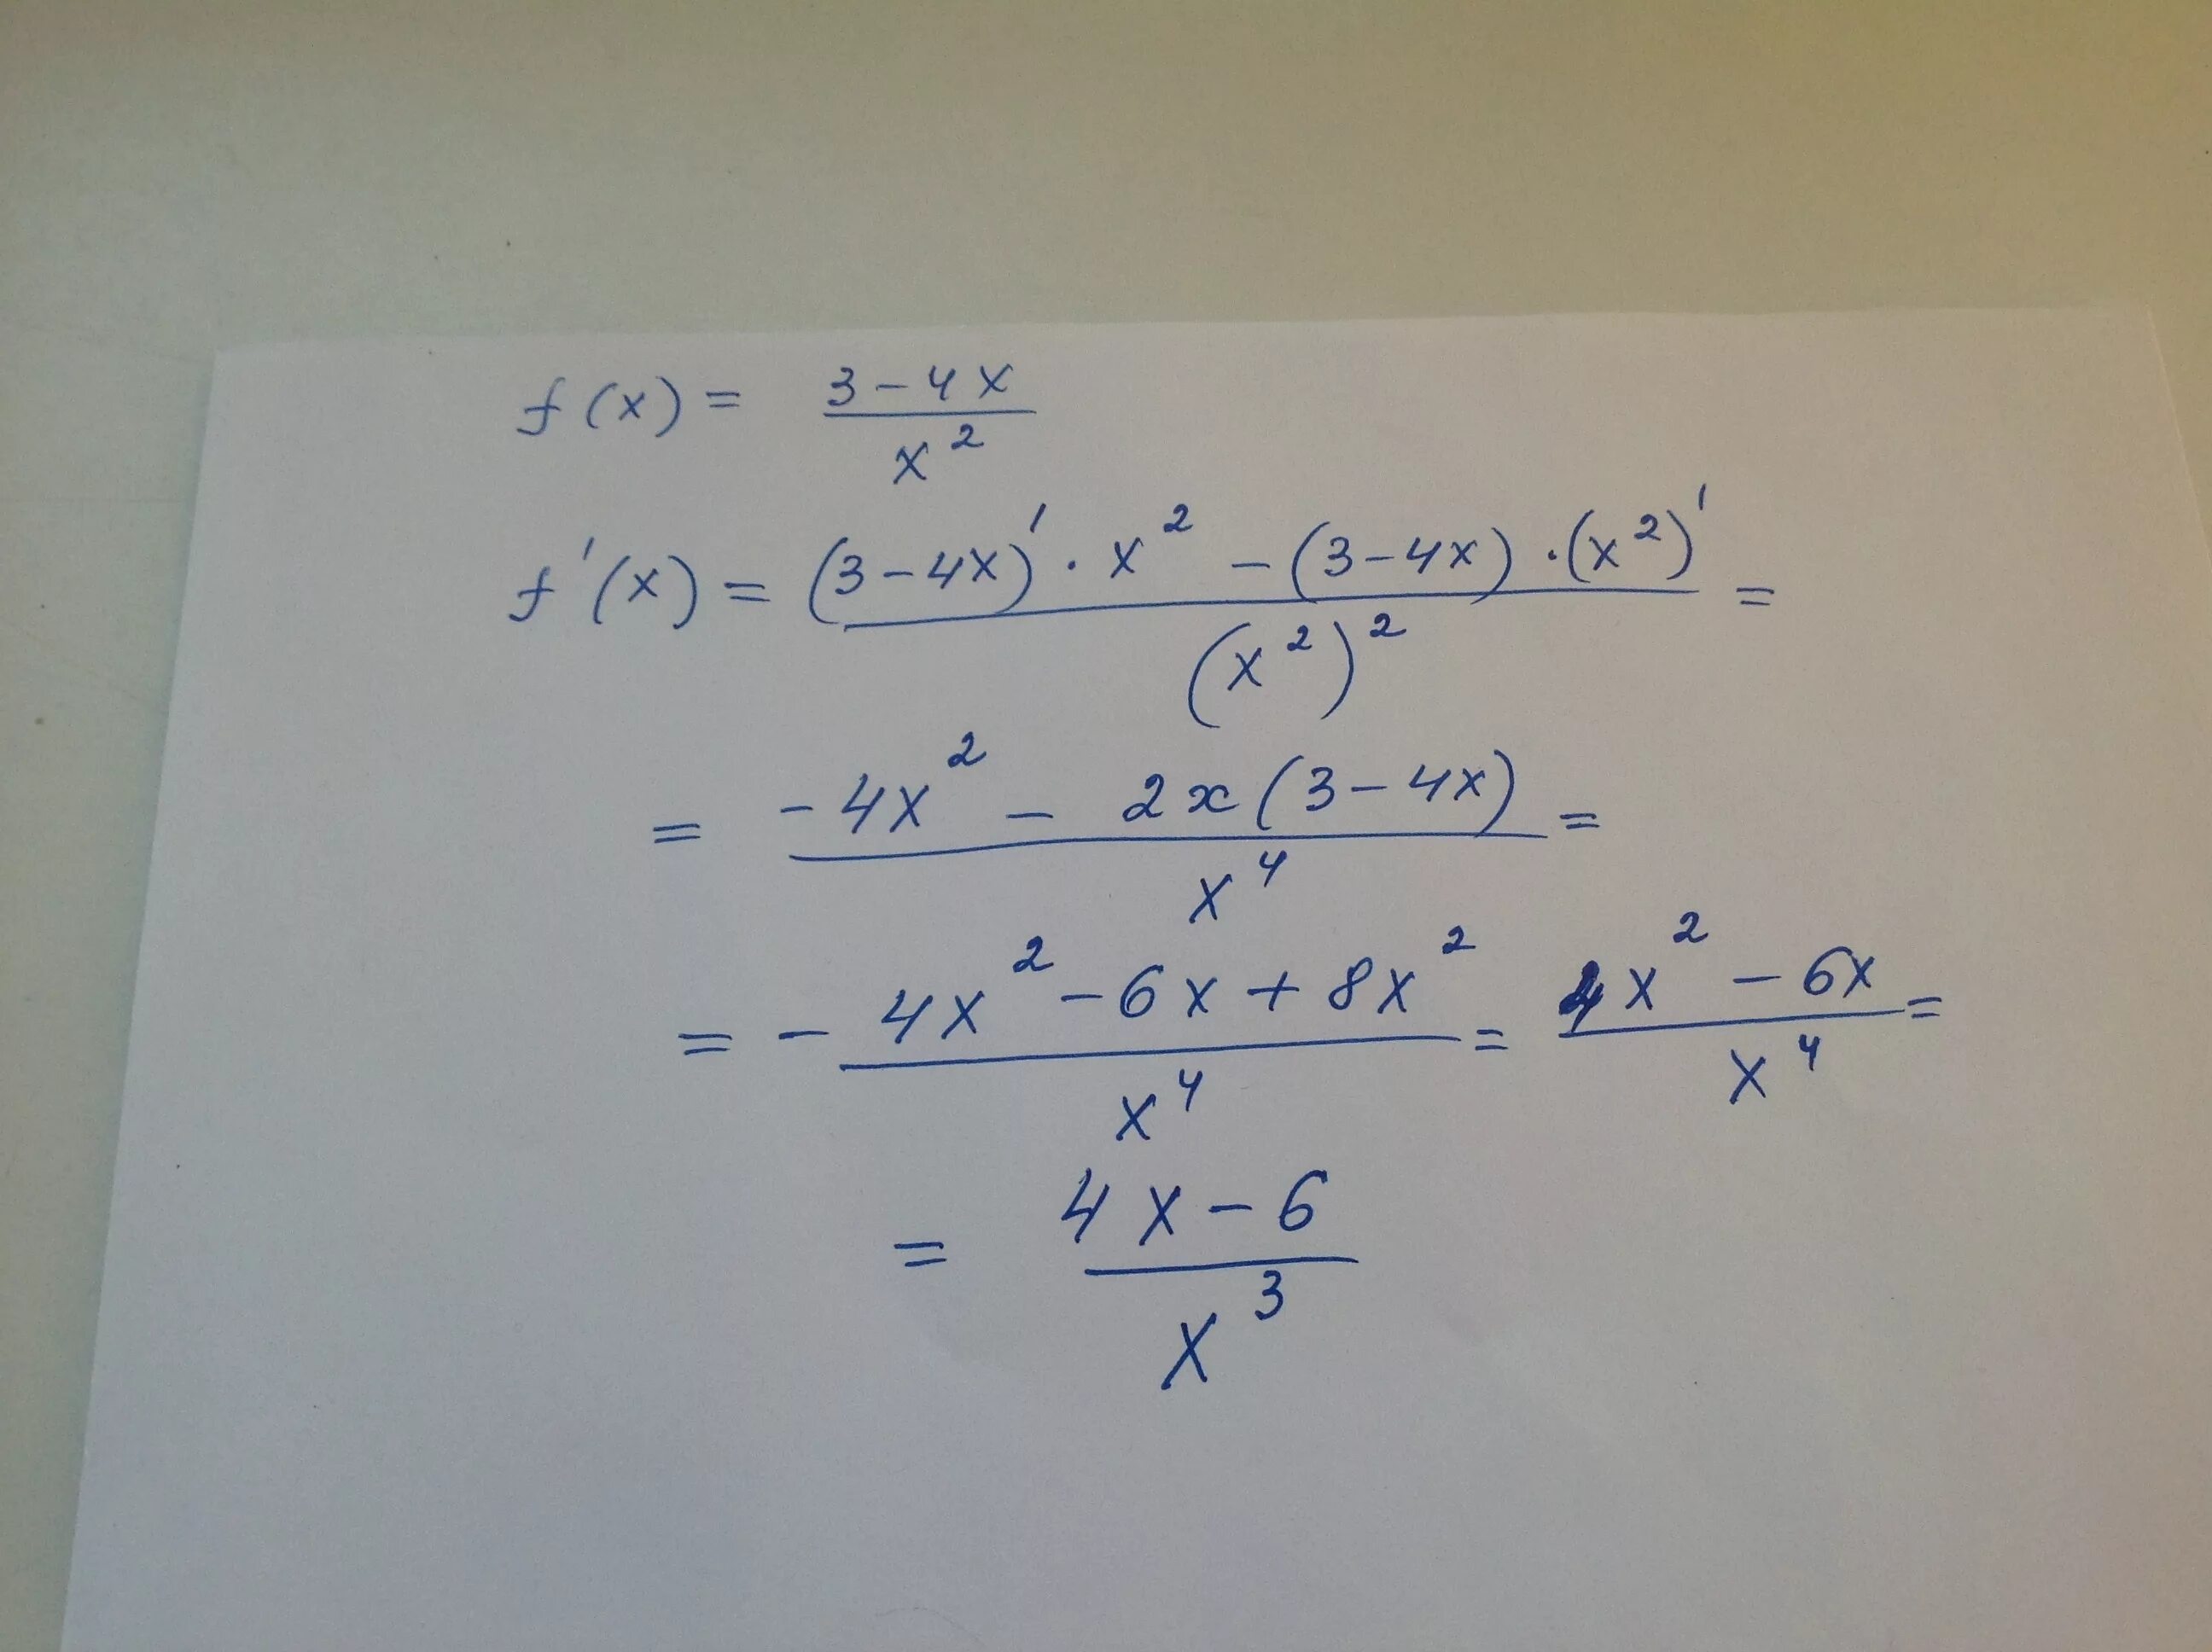 f(x) = (3-4x)/(x^2)
f'(x) = ((3-4x)' · x^2 - (3-4x) · (x^2)')/((x^2)^2) =
= (-4x^2 - 2x(3-4x))/(x^4) =
= - (4x^2 - 6x + 8x^2)/(x^4) = (4x^2 - 6x)/(x^4) =
= (4x-6)/(x^3)